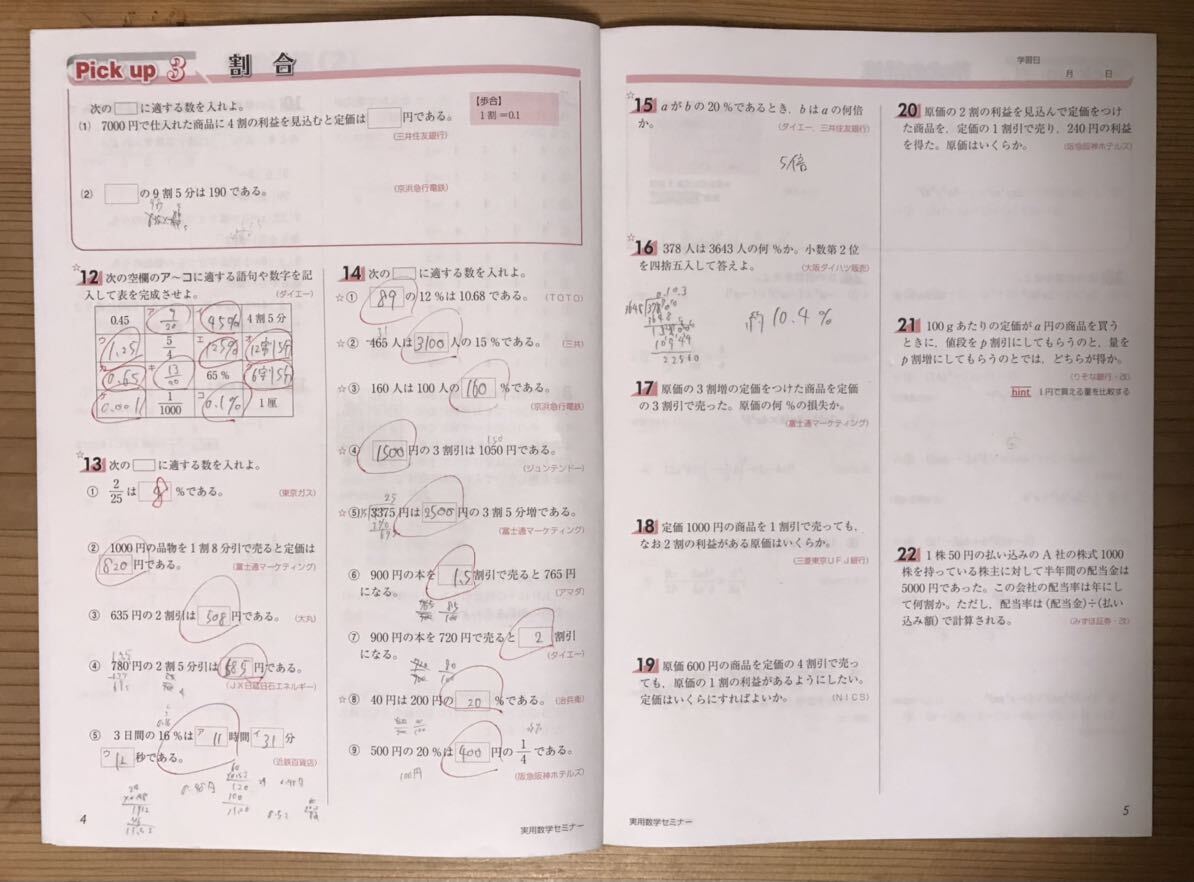 Pick up 3 割合
次の に適する数を入れよ。
【歩合】
1割=0.1
(1) 7000円で仕入れた商品に4割の利益を見込むと定価は 円である。
(三井住友銀行)
(2) の9割5分は190である。
(京浜急行電鉄)
☆12 次の空欄のア〜コに適する語句や数字を記
入して表を完成させよ。
(ダイエー)
0.45 ア 9/20 イ 45% 4割5分
ウ 1.25 5/4 エ 125% オ 12割5分
カ 0.65 キ 13/20 65% ク 6割5分
ケ 0.001 1/1000 コ 0.1% 1厘
13 次の に適する数を入れよ。
① 2/25 は 8 %である。
(東京ガス)
② 1000円の品物を1割8分引で売ると定価は
820 円である。
(富士通マーケティング)
③ 635円の2割引は 508 円である。
(大丸)
④ 780円の2割5分引は 585 円である。
(JX日鉱日石エネルギー)
⑤ 3日間の16%は ア 11 時間 イ 31 分
ウ 12 秒である。
(近鉄百貨店)
4
14 次の に適する数を入れよ。
☆① 89 の12%は10.68である。
(TOTO)
☆② 465人は 3100 人の15%である。
(三共)
☆③ 160人は100人の 160 %である。
(京浜急行電鉄)
☆④ 1500 円の3割引は1050円である。
(ジュンテンドー)
☆⑤ 3375円は 2500 円の3割5分増である。
(富士通マーケティング)
⑥ 900円の本を 1.5 割引で売ると765円
になる。
(アマダ)
765/900 85/100
⑦ 900円の本を720円で売ると 2 割引
になる。
(ダイエー)
720/900 80/100
☆⑧ 40円は200円の 20 %である。
(治兵衛)
⑨ 500円の20%は 400 円の 1/4 である。
100円
(阪急阪神ホテルズ)
実用数学セミナー
学習日
月 日
☆15 aがbの20%であるとき,bはaの何倍
か。
(ダイエー,三井住友銀行)
5倍
☆16 378人は3643人の何%か。小数第2位
を四捨五入して答えよ。
(大阪ダイハツ販売)
約10.4%
17 原価の3割増の定価をつけた商品を定価
の3割引で売った。原価の何%の損失か。
(富士通マーケティング)
18 定価1000円の商品を1割引で売っても,
なお2割の利益がある原価はいくらか。
(三菱東京UFJ銀行)
19 原価600円の商品を定価の4割引で売っ
ても,原価の1割の利益があるようにしたい。
定価はいくらにすればよいか。
(NICS)
実用数学セミナー
20 原価の2割の利益を見込んで定価をつけ
た商品を,定価の1割引で売り,240円の利益
を得た。原価はいくらか。
(阪急阪神ホテルズ)
21 100gあたりの定価がa円の商品を買う
ときに,値段をp割引にしてもらうのと,量を
p割増にしてもらうのとでは,どちらが得か。
(りそな銀行・改)
hint 1円で買える量を比較する
22 1株50円の払い込みのA社の株式1000
株を持っている株主に対して半年間の配当金は
5000円であった。この会社の配当率は年にし
て何割か。ただし,配当率は(配当金)÷(払い
込み額)で計算される。
(みずほ証券・改)
5